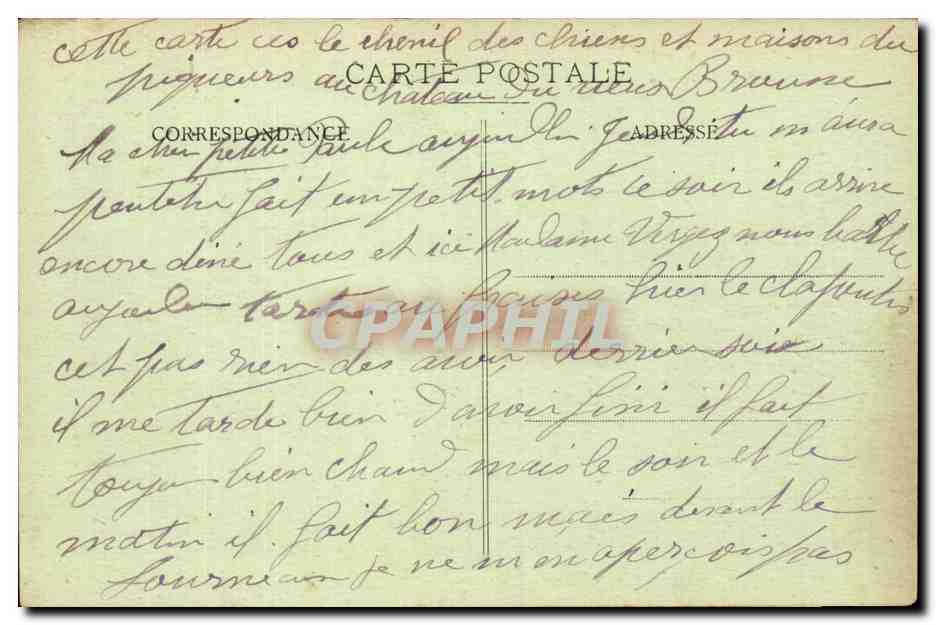 cette carte ces le chenil des chiens et maisons du
piqueurs au chateau du vieus Brousse
CARTE POSTALE
CORRESPONDANCE
ADRESSE
Ma cher petite Paule aujourdhui Jeudi tu m'aura
peutêtre fait un petit mots ce soir ils arrive
encore diné tous et ici Madame Vergez nous
aujourdhui tartes au fraises hier le clafoutis
CPAPHIL
cet pas rien des avoir derrier soie
il me tarde bien d'avoir fini il fait
toujour bien chaud mais le soir et le
matin il fait bon mais devant le
fourneau je ne m'en aperçois pas